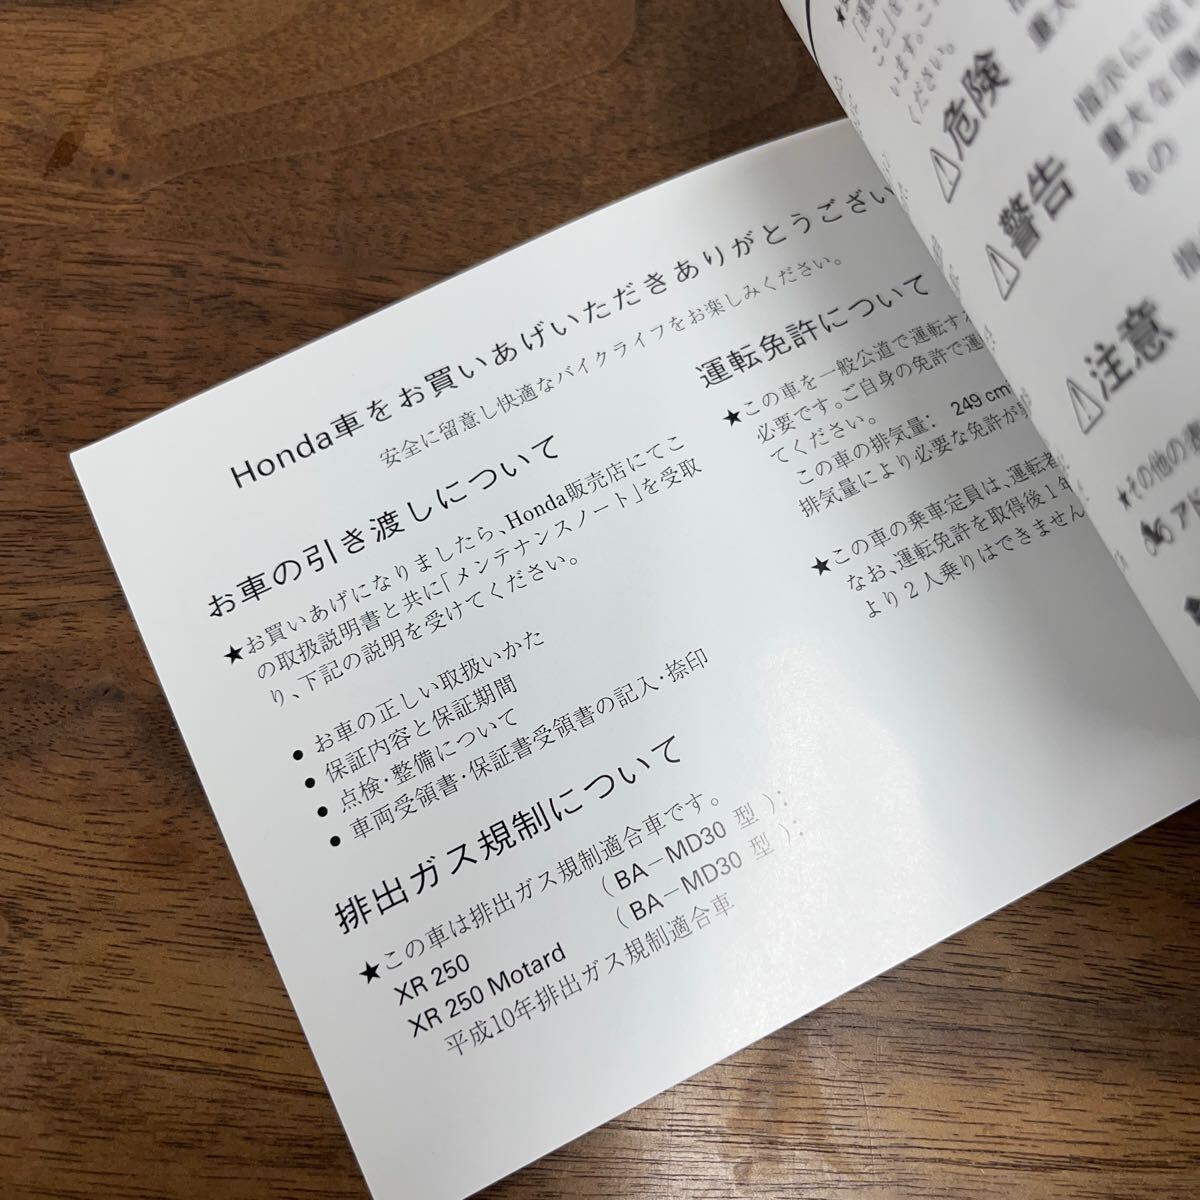 Honda車をお買いあげいただきありがとうござい
安全に留意し快適なバイクライフをお楽しみください。
お車の引き渡しについて
★お買いあげになりましたら、Honda販売店にてこ
の取扱説明書と共に「メンテナンスノート」を受取
り、下記の説明を受けてください。
● お車の正しい取扱いかた
● 保証内容と保証期間
● 点検・整備について
● 車両受領書・保証書受領書の記入・捺印
排出ガス規制について
★この車は排出ガス規制適合車です。
XR 250 （BA－MD30 型）:
XR 250 Motard （BA－MD30 型）:
平成10年排出ガス規制適合車
運転免許について
★この車を一般公道で運転する
必要です。ご自身の免許で運
てください。
この車の排気量: 249 cm
排気量により必要な免許が
★この車の乗車定員は、運転者
なお、運転免許を取得後1年
より2人乗りはできません
こと」を
います。こ
ください。
⚠危険
⚠警告
指示に
重大な傷
もの
⚠注意
★その他の表
アド